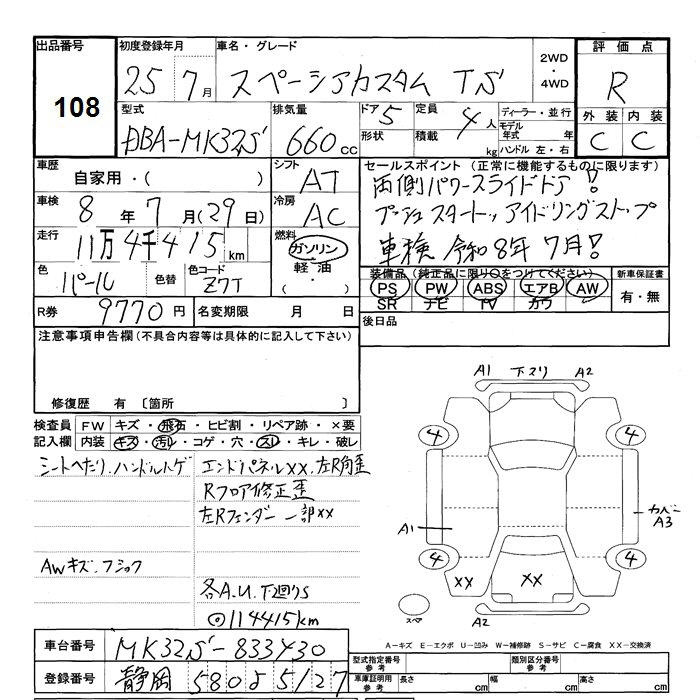 出品番号 108
初度登録年月 25 7月
車名・グレード スペーシアカスタム TS
2WD・4WD
評価点 R
外装 内装
C C
型式 DBA-MK32S
排気量 660cc
ドア 5
形状
定員 4人
積載 kg
ディーラー・並行
モデル年式 年
ハンドル 左・右
車歴 自家用・( )
シフト AT
車検 8年7月(29日)
冷房 AC
走行 11万4千415km
燃料 ガソリン
軽油・( )
色 パール
色替
色コード Z7T
R券 9770円
名変期限 月 日
セールスポイント(正常に機能するものに限ります)
両側パワースライドドア!
プッシュスタート、アイドリングストップ
車検 令和8年7月!
装備品(純正品に限り○をつけてください)
PS PW ABS エアB AW
SR ナビ TV カワ
新車保証書
有・無
後日品
注意事項申告欄(不具合内容等は具体的に記入して下さい)
修復歴 有〔箇所 〕
検査員記入欄
FW キズ・飛石・ヒビ割・リペア跡・×要
内装 キズ・汚レ・コゲ・穴・スレ・キレ・破レ
シートへたり、ハンドルハゲ
エンドパネルXX、左R角歪
Rフロア修正歪
左Rフェンダー一部XX
AWキズ、フショク
各A.U.下廻りS
◎114415km
A1 下スリ A2
4 4
A1
カバーA3
4 4
XX XX
スペア
A2
A-キズ E-エクボ U-凹み W-補修跡 S-サビ C-腐食 XX-交換済
車台番号 MK32S-833430
登録番号 静岡 580 5127
型式指定番号 参考
類別区分番号 参考
車庫証明用 参考
長さ cm 幅 cm 高さ cm